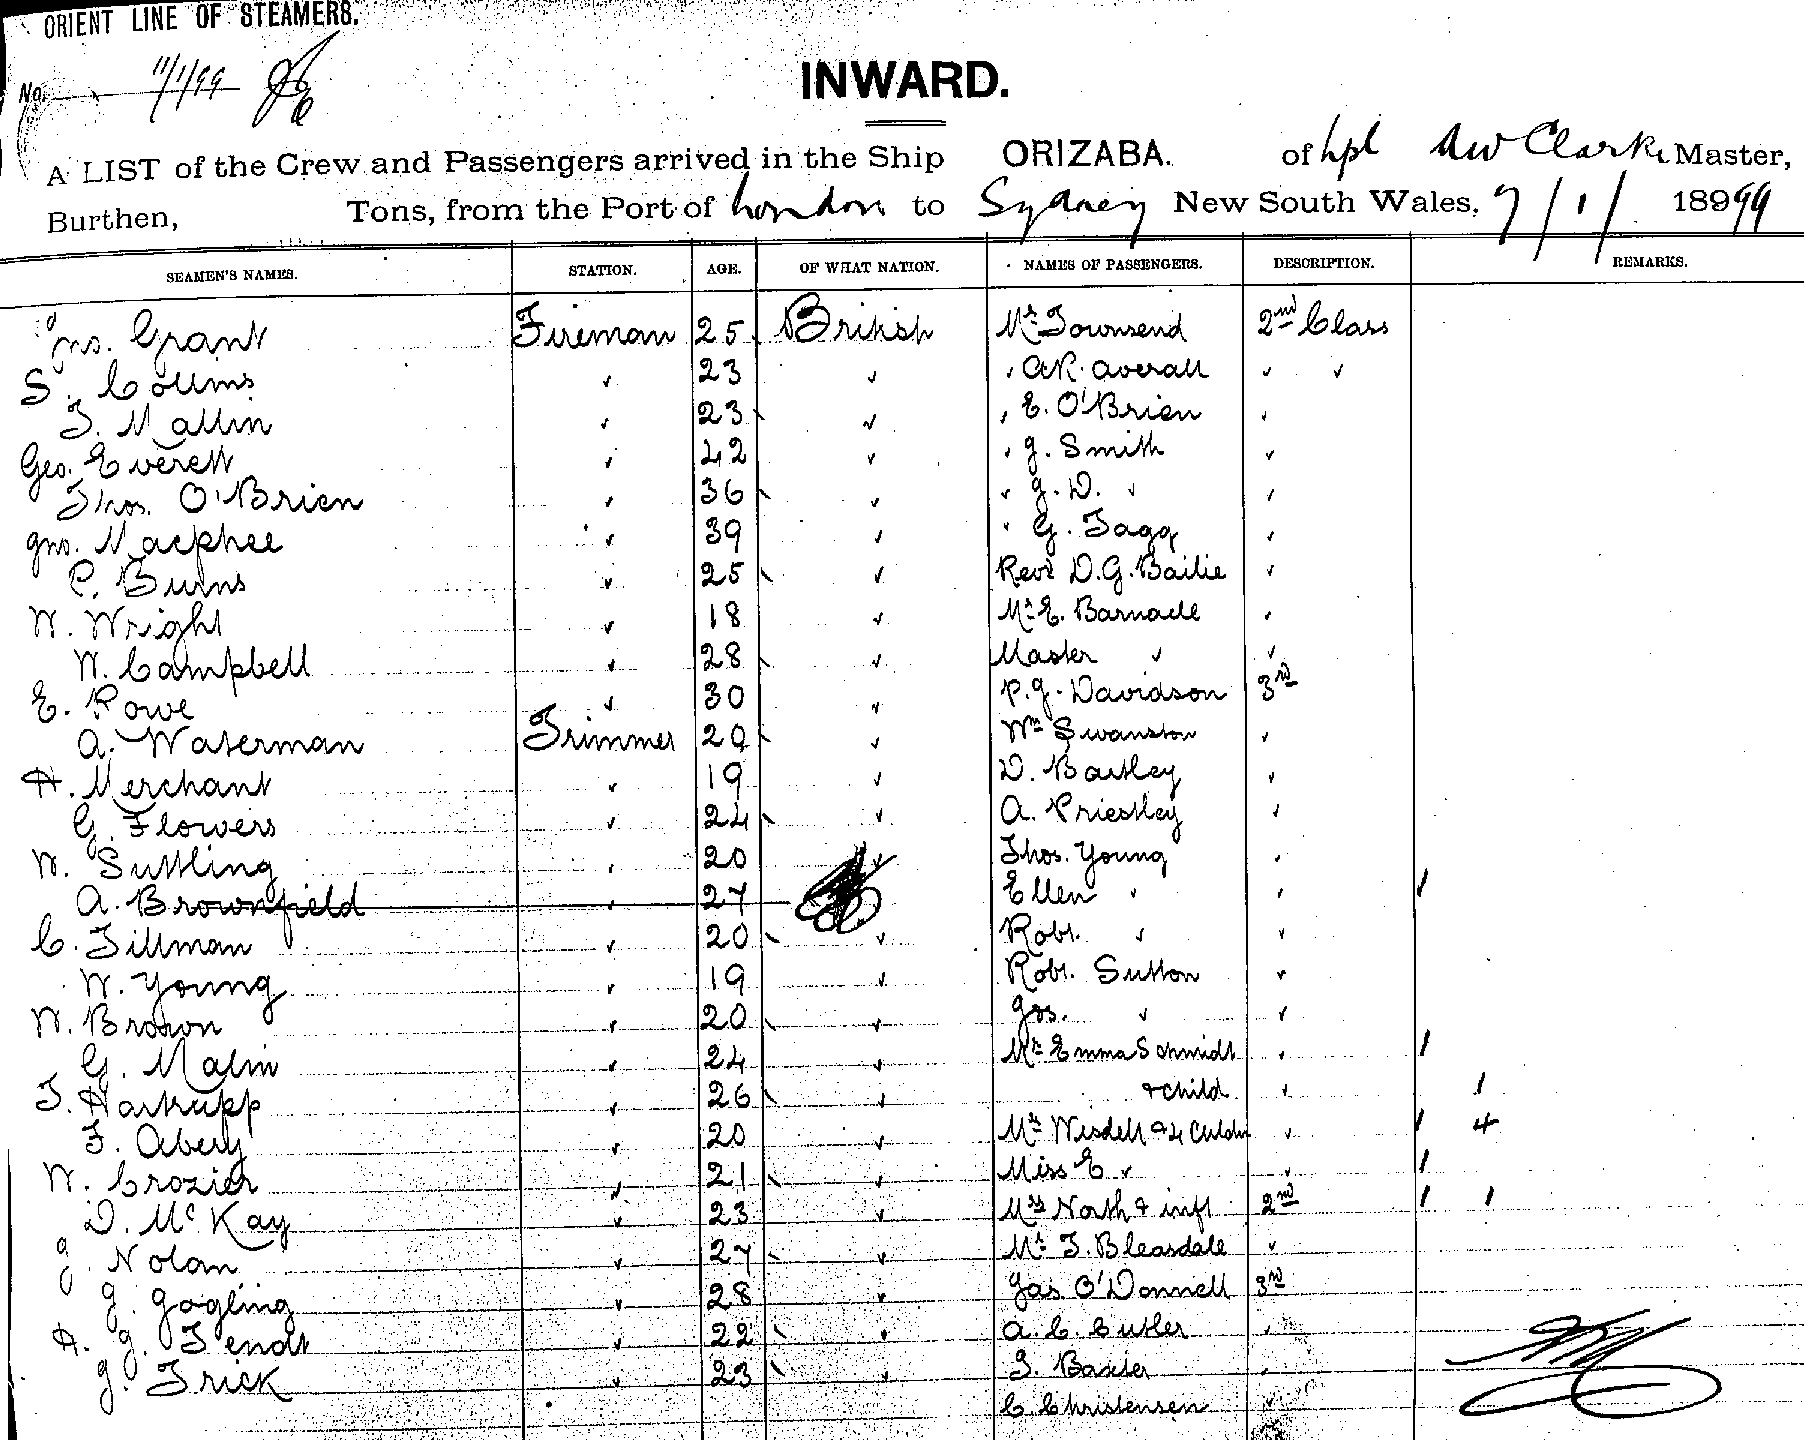 ORIENT LINE OF STEAMERS.
No. 11/1/99
INWARD.
A LIST of the Crew and Passengers arrived in the Ship ORIZABA. of Lpl A W Clarke Master,
Burthen, Tons, from the Port of London to Sydney New South Wales, 7/1/ 18999
SEAMEN'S NAMES. STATION. AGE. OF WHAT NATION. NAMES OF PASSENGERS. DESCRIPTION. REMARKS.
Jno. Grant Fireman 25 British Mr Townsend 2nd Class
S. Collins ✓ 23 ✓ ✓ A.R. Averall ✓ ✓
T. Mallin ✓ 23 ✓ ✓ E. O'Brien ✓
Geo. Everett ✓ 42 ✓ ✓ J. Smith ✓
Thos. O'Brien ✓ 36 ✓ ✓ J. D. ✓ ✓
Jno. Macphee ✓ 39 ✓ ✓ G. Tagg ✓
P. Burns ✓ 25 ✓ Revd D.G. Bailie ✓
W. Wright ✓ 18 ✓ Mr E. Barnade ✓
W. Campbell ✓ 28 ✓ Master ✓ ✓
E. Rowe ✓ 30 ✓ P.J. Davidson 3rd
A. Waterman Trimmer 29 ✓ Wm Swanston ✓
H. Merchant ✓ 19 ✓ D. Bartley ✓
G. Flowers ✓ 24 ✓ A. Priestley ✓
W. Suttling ✓ 20 ✓ Thos. Young ✓
A. Brownfield ✓ 27 Ellen ✓ ✓ 1
C. Tillman ✓ 20 ✓ Robt. ✓ ✓
W. Young ✓ 19 ✓ Robt. Sutton ✓
W. Brown ✓ 20 ✓ Jas. ✓ ✓
G. Malin ✓ 24 ✓ Mrs Emma Schmidt ✓ 1
T. Hartrupp ✓ 26 ✓ & child ✓ 1
F. Abery ✓ 20 ✓ Mrs Wisdell & 4 Childn ✓ 1 4
W. Crozier ✓ 21 ✓ Miss E ✓ ✓ 1
D. McKay ✓ 23 ✓ Mrs North & inft 2nd 1 1
J. Nolan ✓ 27 ✓ Mr T. Bleasdale ✓
J. Gogling ✓ 28 ✓ Jas O'Donnell 3rd
H. J. Tendt ✓ 22 ✓ A. C. Butler ✓
J. Trick ✓ 23 ✓ T. Baxter ✓
C. Christensen ✓